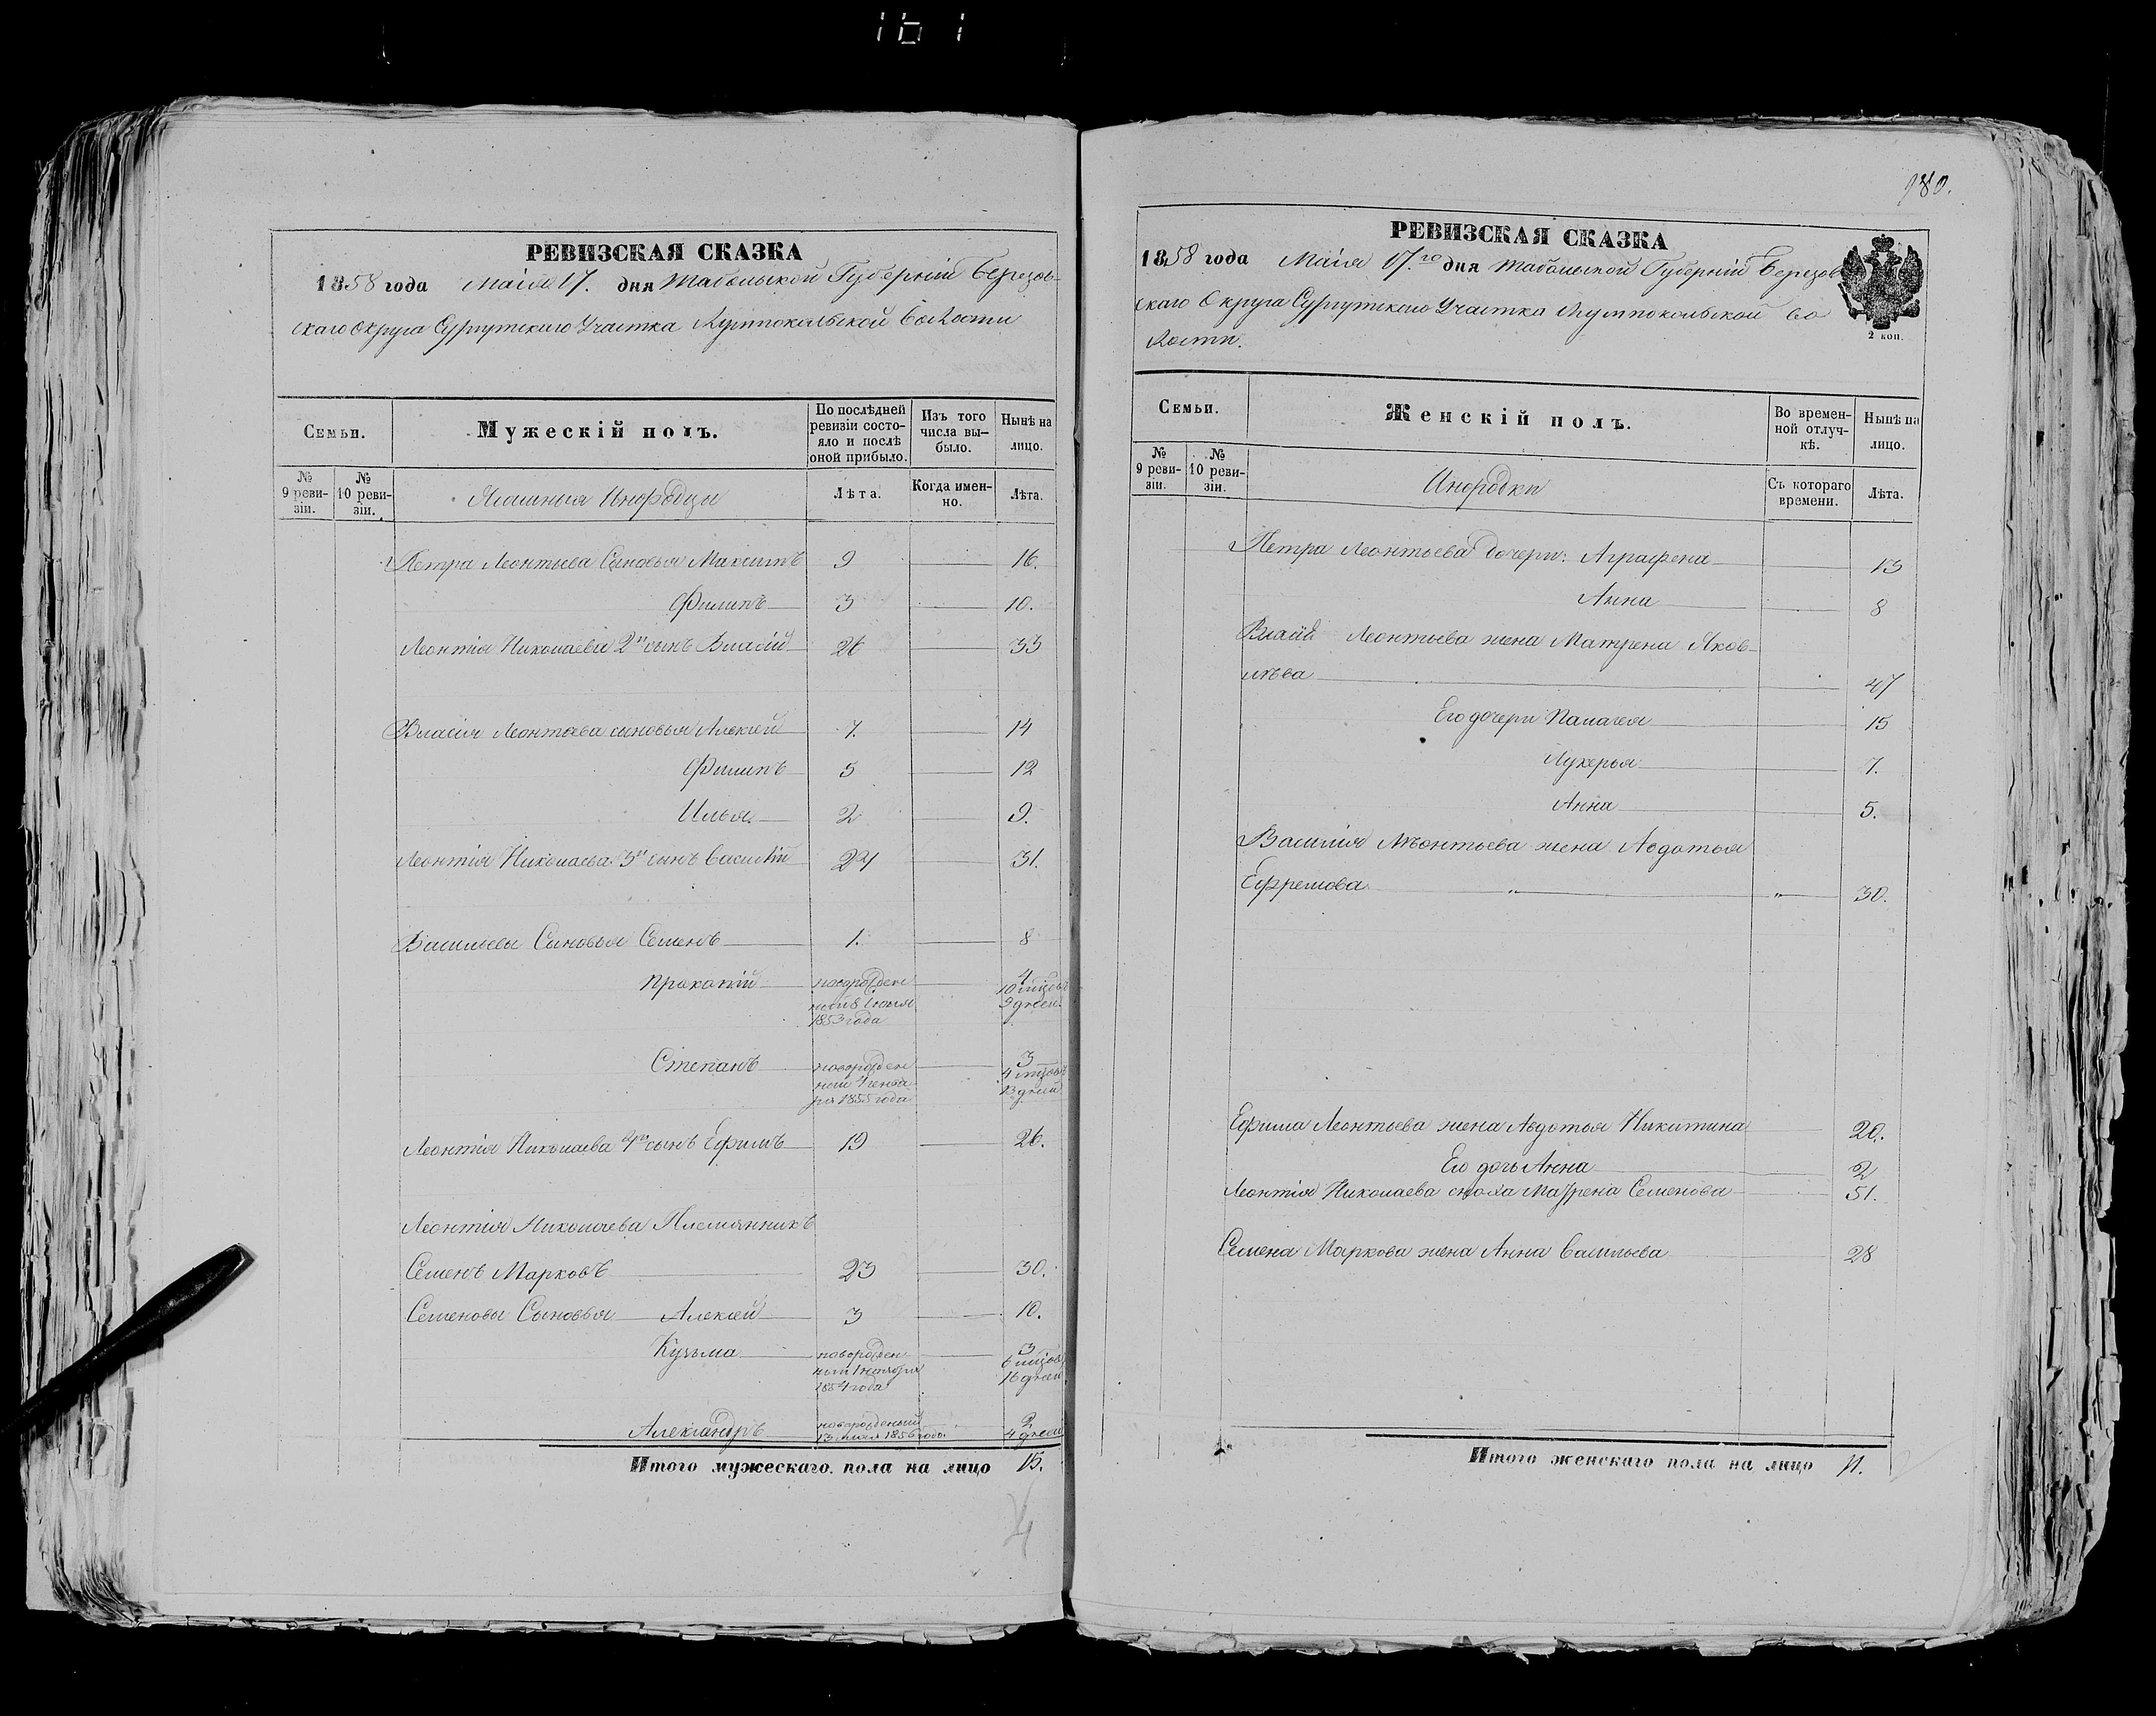 161
РЕВИЗСКАЯ СКАЗКА
1858 года Маія 17. дня Табольской Губерніи Березов-
скаго Округа Сургутскаго Участка Лумпокольской Волости
Семьи.
Мужескій полъ.
По послѣдней ревизіи состо-
яло и послѣ оной прибыло.
Изъ того числа вы-
было.
Нынѣ на лицо.
№ 9 реви-
зіи.
№ 10 реви-
зіи.
Ясашныя Инородцы
Лѣта.
Когда имен-
но.
Лѣта.
Петра Леонтьева Сыновья Максимъ 9 16.
Филипъ 3 10.
Леонтія Николаева 2й сынъ Власій 26 33
Власія Леонтьева сыновья Алексей 7. 14
Филипъ 5 12
Илья 2 9.
Леонтія Николаева 3й сынъ Василій 24 31.
Васильевы Сыновья Семенъ 1. 8
Пракопій новорожден 4
ной 8 Іюля 10 мцовъ
1853 года 9 дней
Степанъ новорожден 3
ный 4 генва 4 мцовъ
ря 1855 года 13 дней
Леонтія Николаева 4й сынъ Ефимъ 19 26.
Леонтія Николаева Племянникъ
Семенъ Марковъ 23 30.
Семеновы Сыновья Алексей 3 10.
Кузьма новорожден 3
ный 1 ноября 6 мцовъ
1854 года 16 дней
Александръ новорожденый 2
13 мая 1856 года 4 дней
Итого мужескаго пола на лицо 15.
4
180.
РЕВИЗСКАЯ СКАЗКА
1858 года Маія 17.го дня Табольской Губерніи Березов
скаго Округа Сургутскаго Участка Лумпокольской во
лости.
2 коп.
Семьи.
Женскій полъ.
Во времен-
ной отлуч-
кѣ.
Нынѣ на лицо.
№ 9 реви-
зіи.
№ 10 реви-
зіи.
Инородки
Съ котораго времени.
Лѣта.
Петра Леонтьева дочери: Аграфена 13
Анна 8
Власія Леонтьева жена Матрена Яков-
лѣва 47
Его дочери Палагея 15
Лукерья 7.
Анна 5.
Василія Леонтьева жена Авдотья
Ефремова " " 30.
Ефима Леонтьева жена Авдотья Никитина 20.
Его дочь Анна 2
Леонтія Николаева сноха Матрена Семенова 51.
Семена Маркова жена Анна Васильева 28
Итого женскаго пола на лицо 11.